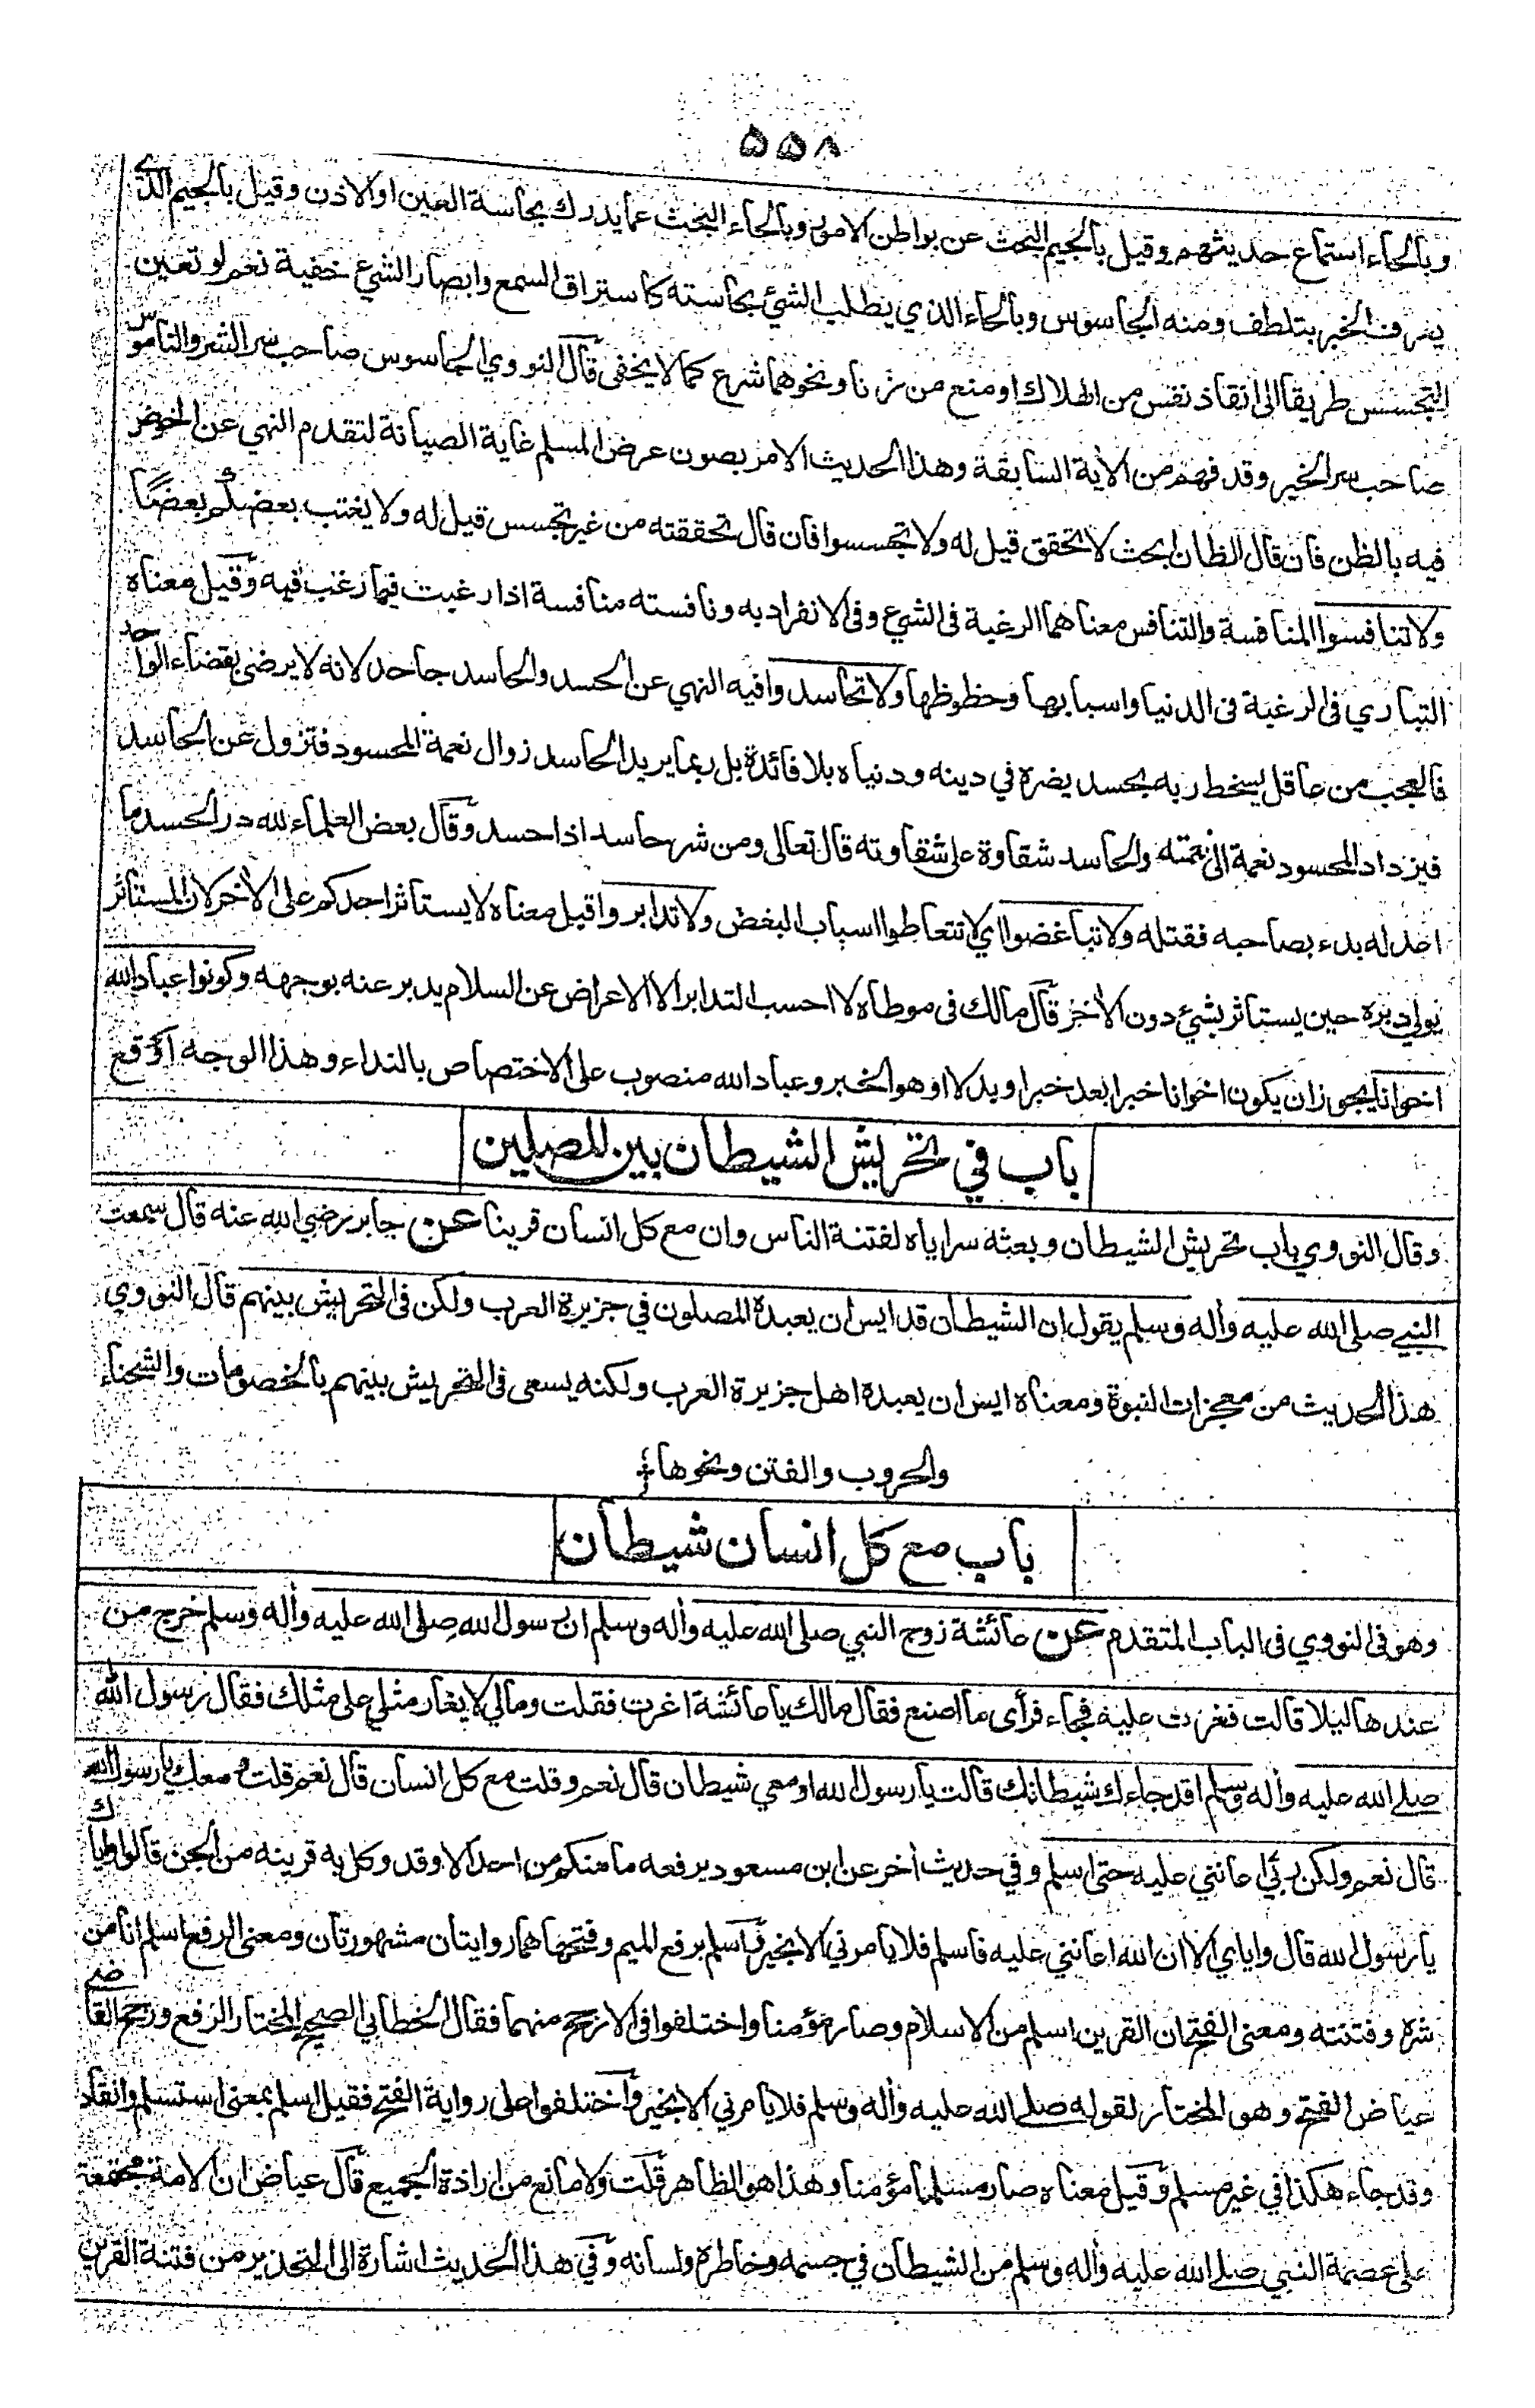 ٥٥٨
وبالحاء استماع حديثهم وقيل بالجيم البحث عن بواطن الامور وبالحاء البحث عما يدرك بحاسة العين او الاذن وقيل بالجيم الذي
يعرف الخبر بتلطف ومنه الجاسوس وبالحاء الذي يطلب الشئ بحاسته كاستراق السمع وابصار الشئ خفية نعم لو تعين
التجسس طريقا الى انقاذ نفس من الهلاك او منع من زنا ونحوهما شرع كما لا يخفى قال النووي الجاسوس صاحب سر الشر والناموس
صاحب سر الخير وقد فهم من الأية السابقة وهذا الحديث الامر بصون عرض المسلم غاية الصيانة لتقدم النهي عن الخوض
فيه بالظن فان قال الظان ابحث لاتحقق قيل له ولا تجسسوا فان قال تحققته من غير تجسس قيل له ولا يغتب بعضكم بعضًا
ولا تنافسوا المنافسة والتنافس معناهما الرغبة فى الشئ وفى الانفراد به ونافسته منافسة اذا رغبت فيما رغب فيه وقيل معناه
التباري فى الرغبة فى الدنيا واسبابها وحظوظها ولا تحاسدوا فيه النهي عن الحسد والحاسد جاحد لانه لا يرضى بقضاء الواحد
فالعجب من عاقل يسخط ربه بحسد يضره في دينه ودنياه بلا فائدة بل ربما يريد الحاسد زوال نعمة المحسود فتزول عن الحاسد
فيزداد المحسود نعمة الى نعمته والحاسد شقاوة على شقاوته قال تعالى ومن شر حاسد اذا حسد وقال بعض العلماء لله در الحسد ما
اعدله بدء بصاحبه فقتله ولا تباغضوا اي لا تتعاطوا اسباب البغض ولا تدابروا قيل معناه لا يستأثر احدكم على الأخر لان المستأثر
يولي دبره حين يستأثر بشئ دون الأخر قال مالك فى موطأه لا احسب التدابر الا الاعراض عن السلام يدبر عنه بوجهه وكونوا عباد الله
اخوانا يجوز ان يكون اخوانا خبرا بعد خبر او بدلا او هو الخبر وعباد الله منصوب على الاختصاص بالنداء وهذا الوجه اوقع
باب في تحريش الشيطان بين المصلين
وقال النووي باب تحريش الشيطان وبعثه سراياه لفتنة الناس وان مع كل انسان قرينا عن جابر رضي الله عنه قال سمعت
النبي صلى الله عليه وأله وسلم يقول ان الشيطان قد ايس ان يعبده المصلون في جزيرة العرب ولكن فى التحريش بينهم قال النووي
هذا الحديث من معجزات النبوة ومعناه ايس ان يعبده اهل جزيرة العرب ولكنه يسعى فى التحريش بينهم بالخصومات والشحناء
والحروب والفتن ونحوها
باب مع كل انسان شيطان
وهو فى النووي فى الباب المتقدم عن عائشة زوج النبي صلى الله عليه وأله وسلم ان رسول الله صلى الله عليه وأله وسلم خرج من
عندها ليلا قالت فغرت عليه فجاء فرأى ما اصنع فقال مالك يا عائشة اغرت فقلت ومالي لا يغار مثلي على مثلك فقال رسول الله
صلى الله عليه وأله وسلم اقد جاءك شيطانك قالت يا رسول الله او معي شيطان قال نعم وقلت مع كل انسان قال نعم قلت ومعك يا رسول الله
قال نعم ولكن ربي اعانني عليه حتى اسلم وفي حديث أخر عن ابن مسعود يرفعه ما منكم من احد الا وقد وكل به قرينه من الجن قالوا واياك
يا رسول الله قال واياي الا ان الله اعانني عليه فاسلم فلا يامرني الا بخير فاسلم برفع الميم وفتحها هما روايتان مشهورتان ومعنى الرفع اسلم انا من
شره وفتنته ومعنى الفتح ان القرين اسلم من الاسلام وصار مؤمنا واختلفوا فى الارجح منهما فقال الخطابي الصحيح المختار الرفع ورجح القاضي
عياض الفتح وهو المختار لقوله صلى الله عليه وأله وسلم فلا يامرني الا بخير واختلفوا على رواية الفتح فقيل اسلم بمعنى استسلم وانقاد
وقد جاء هكذا في غير مسلم وقيل معناه صار مسلما مؤمنا وهذا هو الظاهر قلت ولا مانع من ارادة الجميع قال عياض ان الامة مجتمعة
على عصمة النبي صلى الله عليه وأله وسلم من الشيطان في جسمه وخاطره ولسانه وفي هذا الحديث اشارة الى التحذير من فتنة القرين